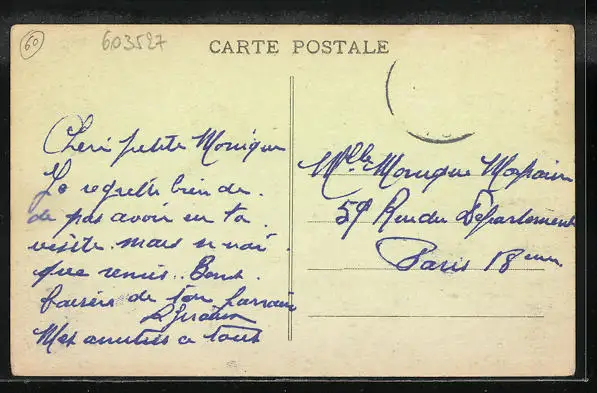 60
603527
CARTE POSTALE
Cheri petite Monique
Je regrette bien de
de pas avoir eu ta
visite mais
que remis.. Bons
baisers de ton parrain
Mes amities a tous
Mlle Monique
59 Rue du Département
Paris 18 eme